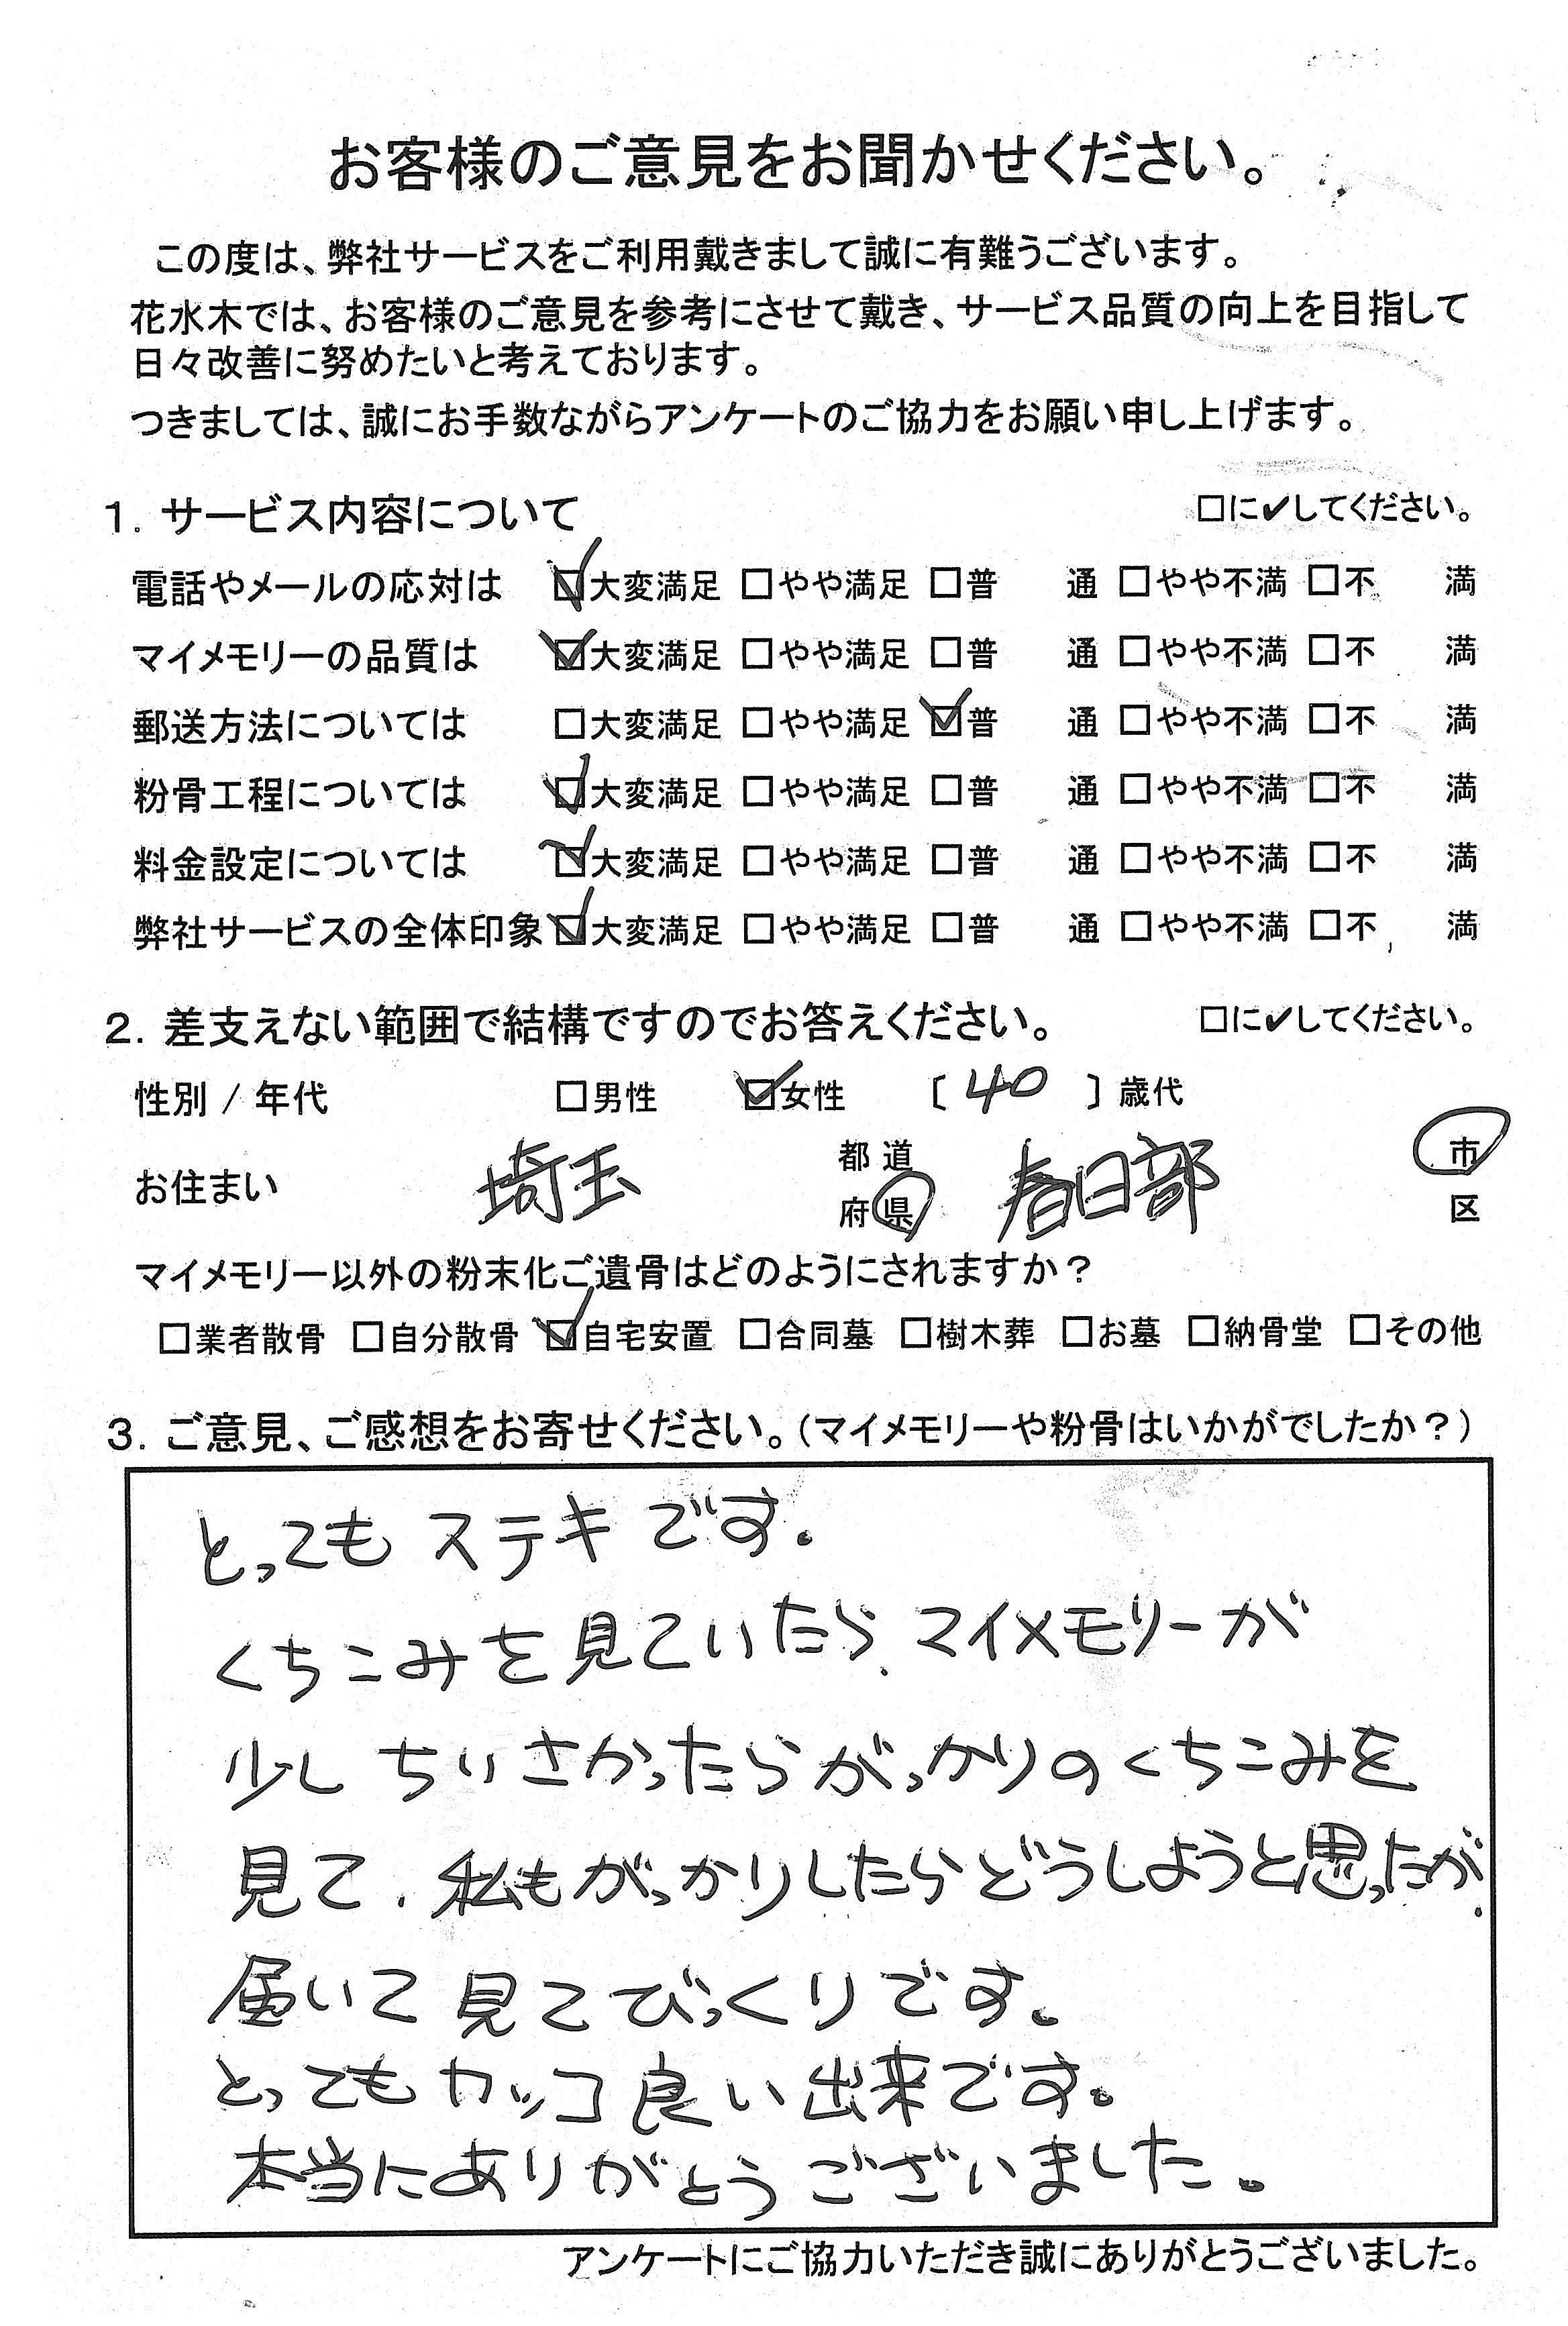 お客様のご意見をお聞かせください。
この度は、弊社サービスをご利用戴きまして誠に有難うございます。
花水木では、お客様のご意見を参考にさせて戴き、サービス品質の向上を目指して
日々改善に努めたいと考えております。
つきましては、誠にお手数ながらアンケートのご協力をお願い申し上げます。
1. サービス内容について □に✔してください。
電話やメールの応対は ☑大変満足 □やや満足 □普 通 □やや不満 □不 満
マイメモリーの品質は ☑大変満足 □やや満足 □普 通 □やや不満 □不 満
郵送方法については □大変満足 □やや満足 ☑普 通 □やや不満 □不 満
粉骨工程については ☑大変満足 □やや満足 □普 通 □やや不満 □不 満
料金設定については ☑大変満足 □やや満足 □普 通 □やや不満 □不 満
弊社サービスの全体印象 ☑大変満足 □やや満足 □普 通 □やや不満 □不 満
2. 差支えない範囲で結構ですのでお答えください。 □に✔してください。
性別 / 年代 □男性 ☑女性 〔 40 〕歳代
お住まい 埼玉 都道府県 春日部 市区
マイメモリー以外の粉末化ご遺骨はどのようにされますか？
□業者散骨 □自分散骨 ☑自宅安置 □合同墓 □樹木葬 □お墓 □納骨堂 □その他
3. ご意見、ご感想をお寄せください。(マイメモリーや粉骨はいかがでしたか？)
とってもステキです.
くちこみを見ていたら、マイメモリーが
少しちいさかったらがっかりのくちこみを
見て、私もがっかりしたらどうしようと思ったが、
届いて見てびっくりです。
とってもカッコ良い出来です。
本当にありがとうございました。
アンケートにご協力いただき誠にありがとうございました。